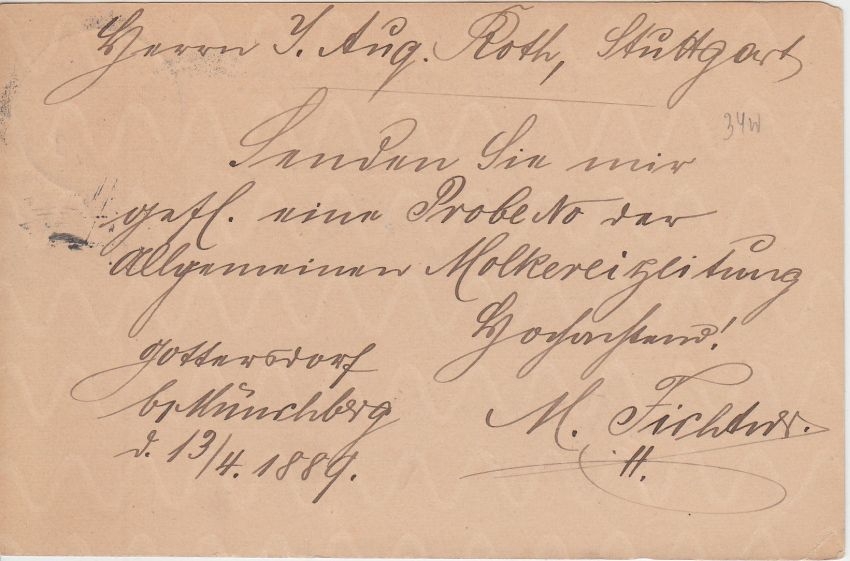 Herrn J. Aug. Roth, Stuttgart
34W
Senden Sie mir
gefl. eine Probe No der
Allgemeinen Molkereizeitung
Hochachtend!
Gottersdorf
b/Münchberg
d. 13/4. 1889.
M. Fichtner.
H.